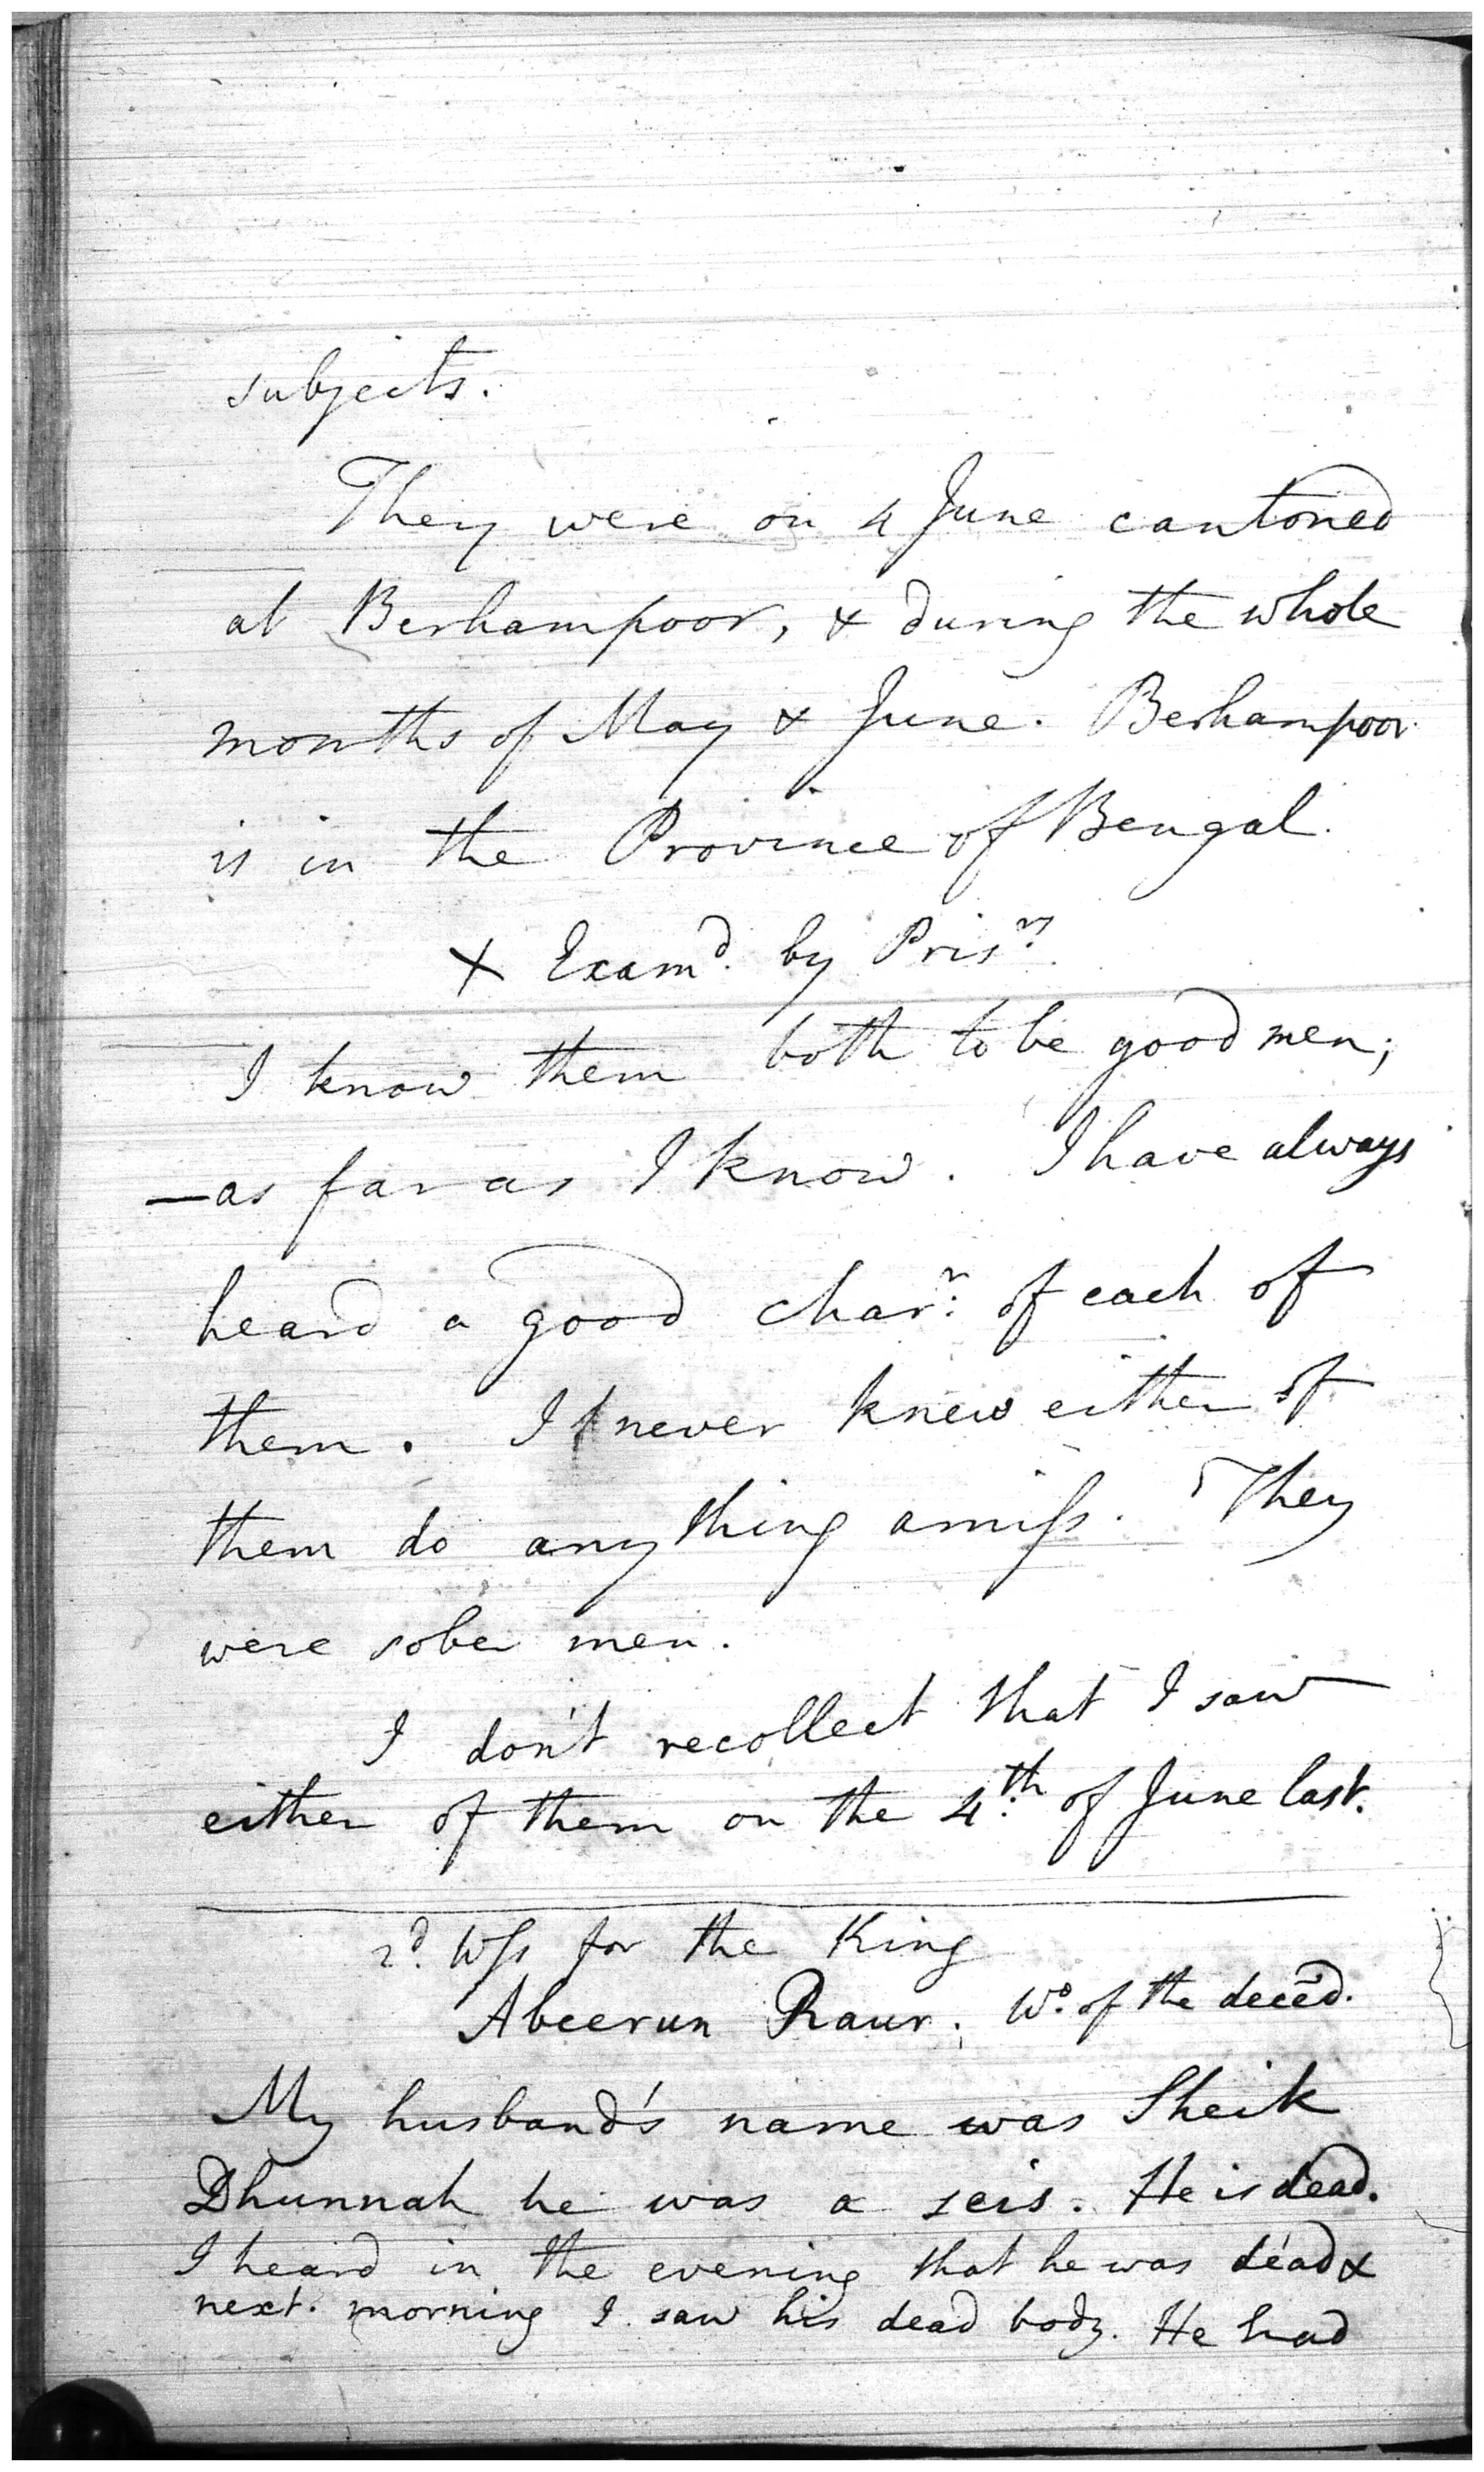 subjects.
They were on 4 June cantoned
at Berhampoor, & during the whole
months of May & June. Berhampoor
is in the Province of Bengal.
X Exam^d. by Pris^r.
I know them both to be good men;
—as far as I know. I have always
heard a good char^r: of each of
them. I never knew either of
them do any thing amiss. They
were sober men.
I don't recollect that I saw
either of them on the 4^th. of June last.
2^d. Wss for the King
Abeerun Raur. W^o. of the decēd.
My husband's name was Sheik
Dhunnah he was a seis. He is dead.
I heard in the evening that he was dead &
next morning I saw his dead body. He had